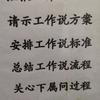 请示工作说方案
安排工作说标准
总结工作说流程
关心下属问过程